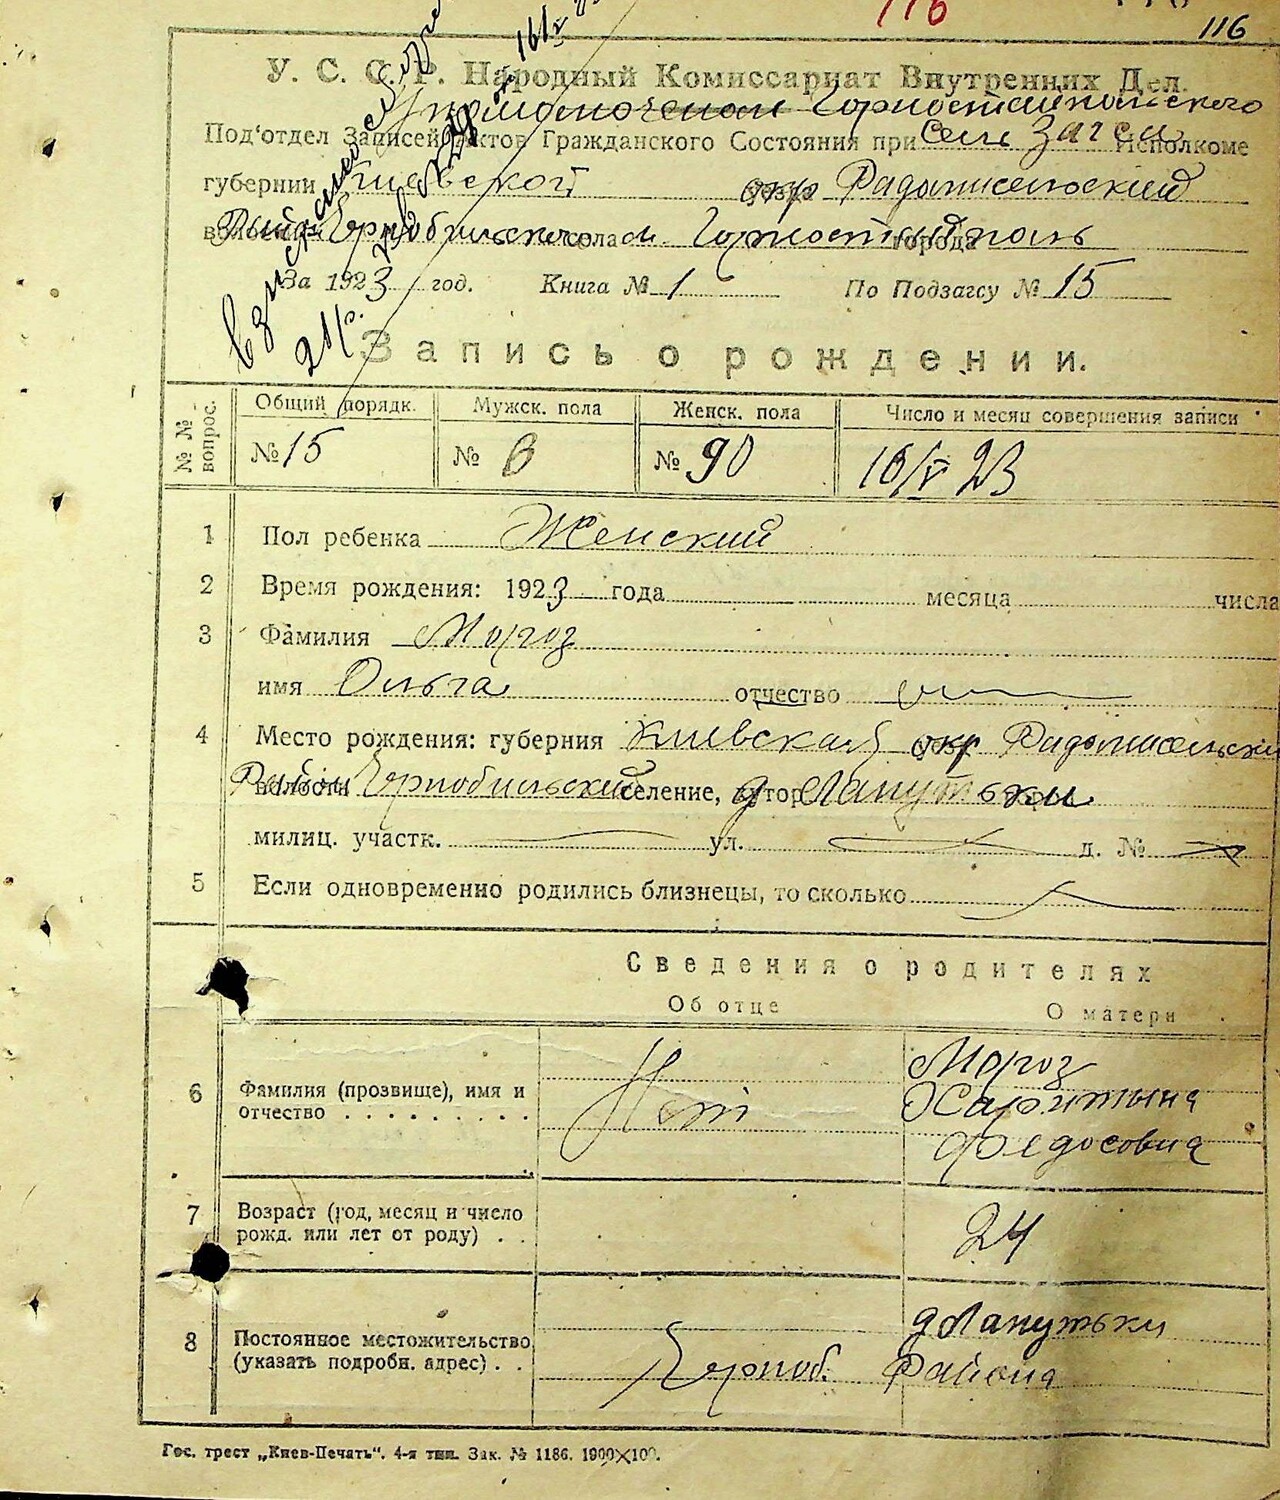 116
116
У. С. С. Р. Народный Комиссариат Внутренних Дел.
Горностайпольского
Под'отдел Записей Актов Гражданского Состояния при Загса Исполкоме
губернии Киевской окр Радомисельский
Чернобильского села м. Горностайполь города
За 1923 год. Книга № 1 По Подзагсу № 15
Запись о рождении.
№ № вопрос. Общий порядк. Мужск. пола Женск. пола Число и месяц совершения записи
№ 15 № № 90 16/V 23
1 Пол ребенка Женский
2 Время рождения: 1923 года месяца числа
3 Фамилия Мороз
имя Ольга отчество
4 Место рождения: губерния Киевская окр Радомисельский
Район Чернобильский селение, хутор д Лапутьки
милиц. участк. ул. д. №
5 Если одновременно родились близнецы, то сколько
Сведения о родителях
Об отце О матери
6 Фамилия (прозвище), имя и отчество Нет Мороз Харитына Федосовна
7 Возраст (год, месяц и число рожд. или лет от роду) 24
8 Постоянное местожительство (указать подробн. адрес) д Лапутьки
Черноб. Района
Гос. трест „Киев-Печать“. 4-я тип. Зак. № 1186. 1900×100.